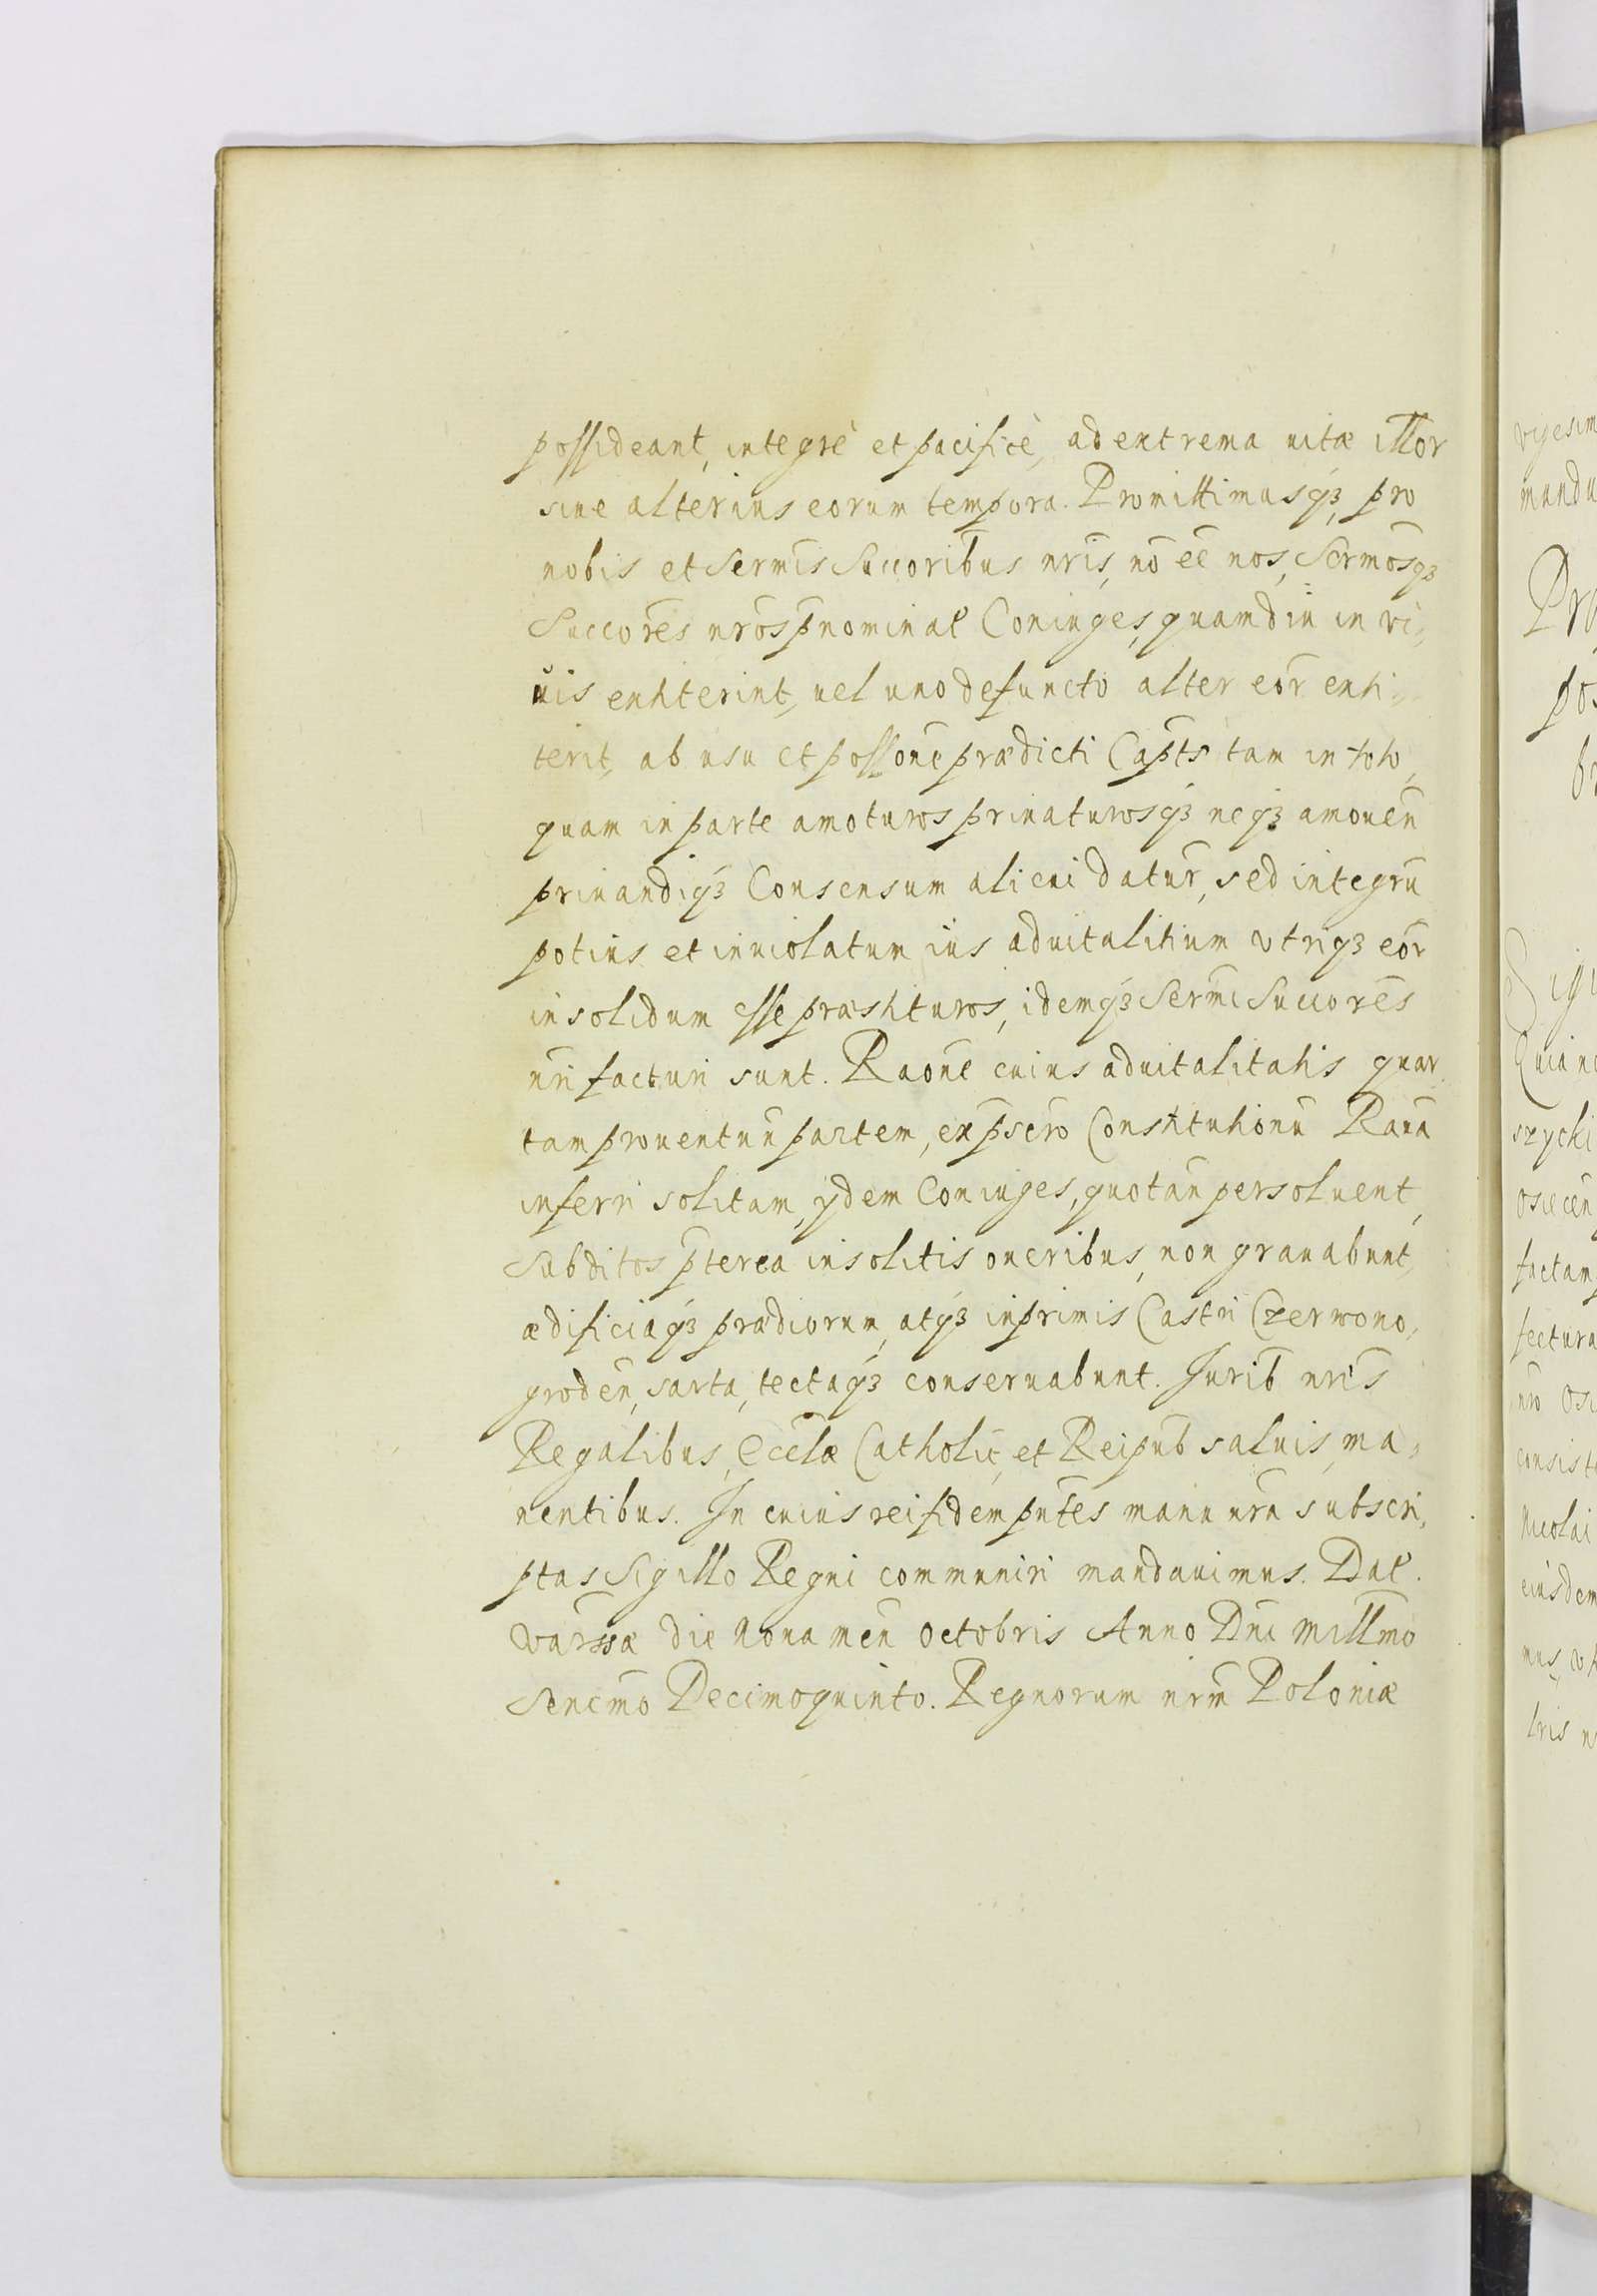 possideant, integrè et pacificè, ad extrema uitæ illor̄
siue alterius eorum tempora. Promittimusqꝫ, pro
nobis et Sermis Succoribus nr̄is, nō eē nos, Sermosqꝫ
Succores nr̄os p̄nominat Coniuges, quamdiu in vi„
uis extiterint, uel uno defuncto alter eor̄ exti„
terit, ab usu et possone prædicti Capts tam in toto,
quam in parte amoturos priuaturosqꝫ neqꝫ amouen̄
priuandiqꝫ Consensum alicui datur̄, sed integrū
potius et inuiolatum ius aduitalitium vtriqꝫ eor̄
in solidum esse præstituros, idemqꝫ Sermi Succores
nr̄i facturi sunt. Raone cuius aduitalitatis quar„
tam prouentuū partem, ex p̄scro Constitutionū Raua
inferri solitam, ijdem Coniuges, quotan̄ persoluent,
Subditos p̄terea insolitis oneribus, non grauabunt,
ædificiaqꝫ prædiorum, atqꝫ inprimis Castri Czerwono„
groden̄, sarta, tectaqꝫ conseruabunt. Jurib nr̄is
Regalibus, Ecclæ Catholic, et Reipub saluis, ma„
nentibus. In cuius rei fidem pn̄tes manu nr̄a subscri„
ptas Sigillo Regni communiri mandauimus. Dat.
Varssæ die Nona men̄ Octobris Anno Dn̄i Millmo
Sexcmo Decimoquinto. Regnorum nrm̄ Poloniæ